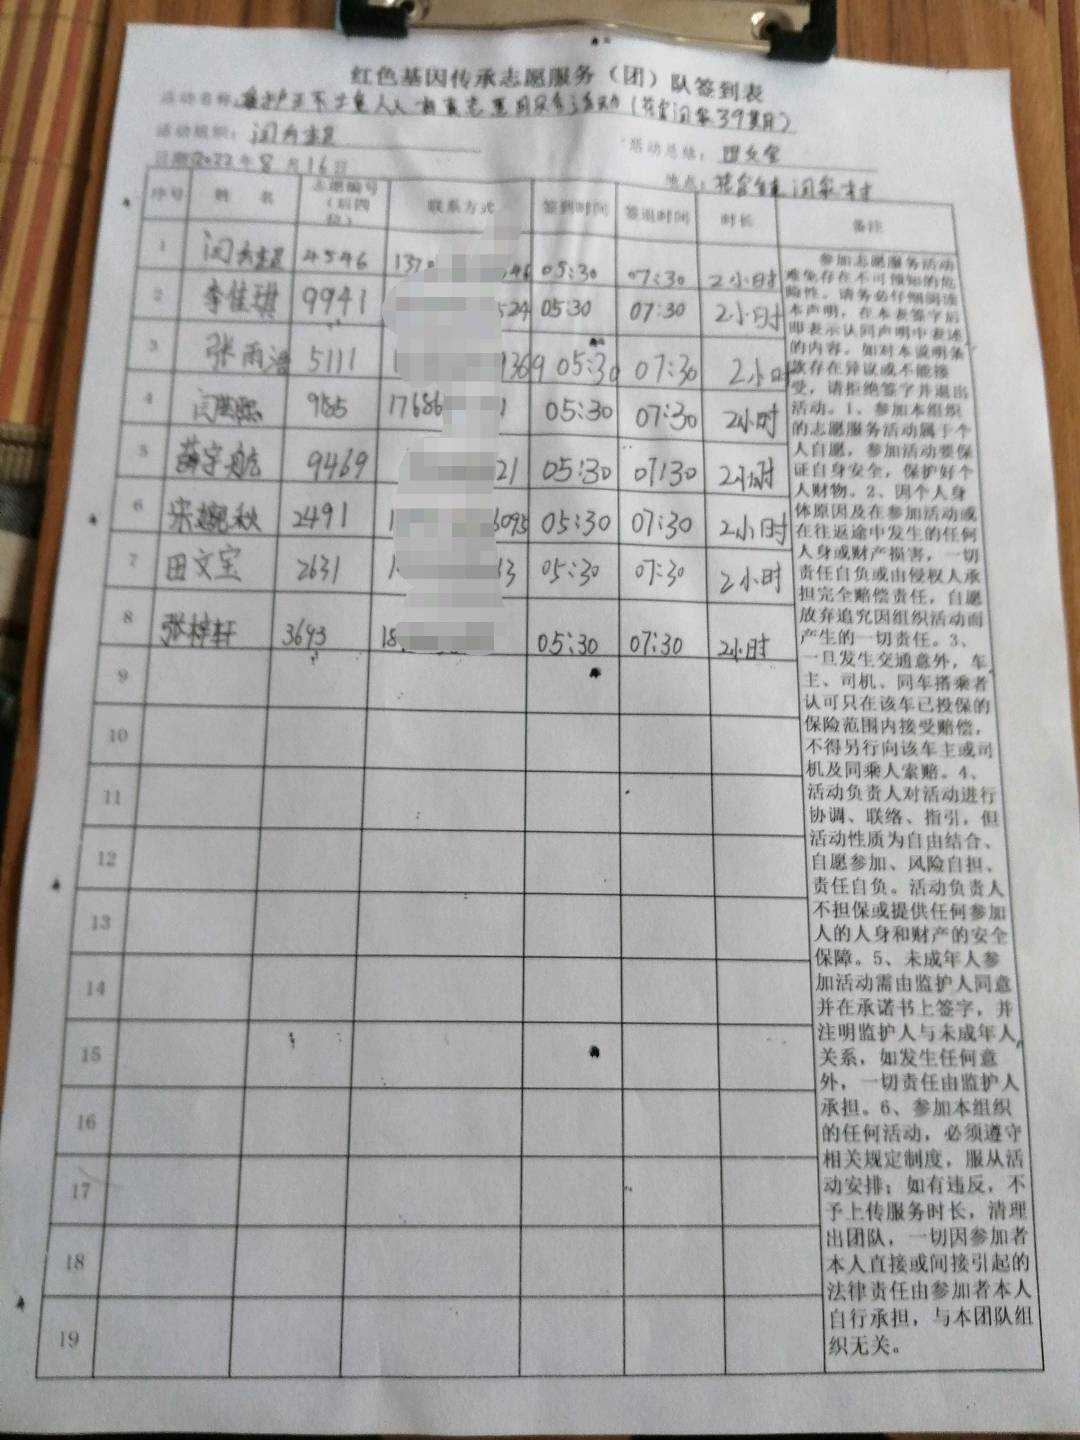 红色基因传承志愿服务（团）队签到表
活动名称：
活动组织：闫秀 活动总结：田文宝
日期2022年8月16日 地点：
序号 姓名 志愿编号（后四位） 联系方式 签到时间 签退时间 时长 备注
1 闫秀 4546 137 46 05:30 07:30 2小时
2 李佳琪 9941 524 05:30 07:30 2小时
3 张雨浩 5111 1 9369 05:30 07:30 2小时
4 闫 985 17686 1 05:30 07:30 2小时
5 薛宇航 9469 21 05:30 07:30 2小时
6 宋婉秋 2491 1 6095 05:30 07:30 2小时
7 田文宝 2631 1 33 05:30 07:30 2小时
8 张梓轩 3693 18 05:30 07:30 2小时
9
10
11
12
13
14
15
16
17
18
19
参加志愿服务活动
难免存在不可预知的危
险性。请务必仔细阅读
本声明，在本表签字后
即表示认同声明中表述
的内容。如对本说明条
款存在异议或不能接
受，请拒绝签字并退出
活动。1、参加本组织
的志愿服务活动属于个
人自愿，参加活动要保
证自身安全，保护好个
人财物。2、因个人身
体原因及在参加活动或
在往返途中发生的任何
人身或财产损害，一切
责任自负或由侵权人承
担完全赔偿责任，自愿
放弃追究因组织活动而
产生的一切责任。3、
一旦发生交通意外，车
主、司机、同车搭乘者
认可只在该车已投保的
保险范围内接受赔偿，
不得另行向该车主或司
机及同乘人索赔。4、
活动负责人对活动进行
协调、联络、指引，但
活动性质为自由结合、
自愿参加、风险自担、
责任自负。活动负责人
不担保或提供任何参加
人的人身和财产的安全
保障。5、未成年人参
加活动需由监护人同意
并在承诺书上签字，并
注明监护人与未成年人
关系，如发生任何意
外，一切责任由监护人
承担。6、参加本组织
的任何活动，必须遵守
相关规定制度，服从活
动安排；如有违反，不
予上传服务时长，清理
出团队，一切因参加者
本人直接或间接引起的
法律责任由参加者本人
自行承担，与本团队组
织无关。